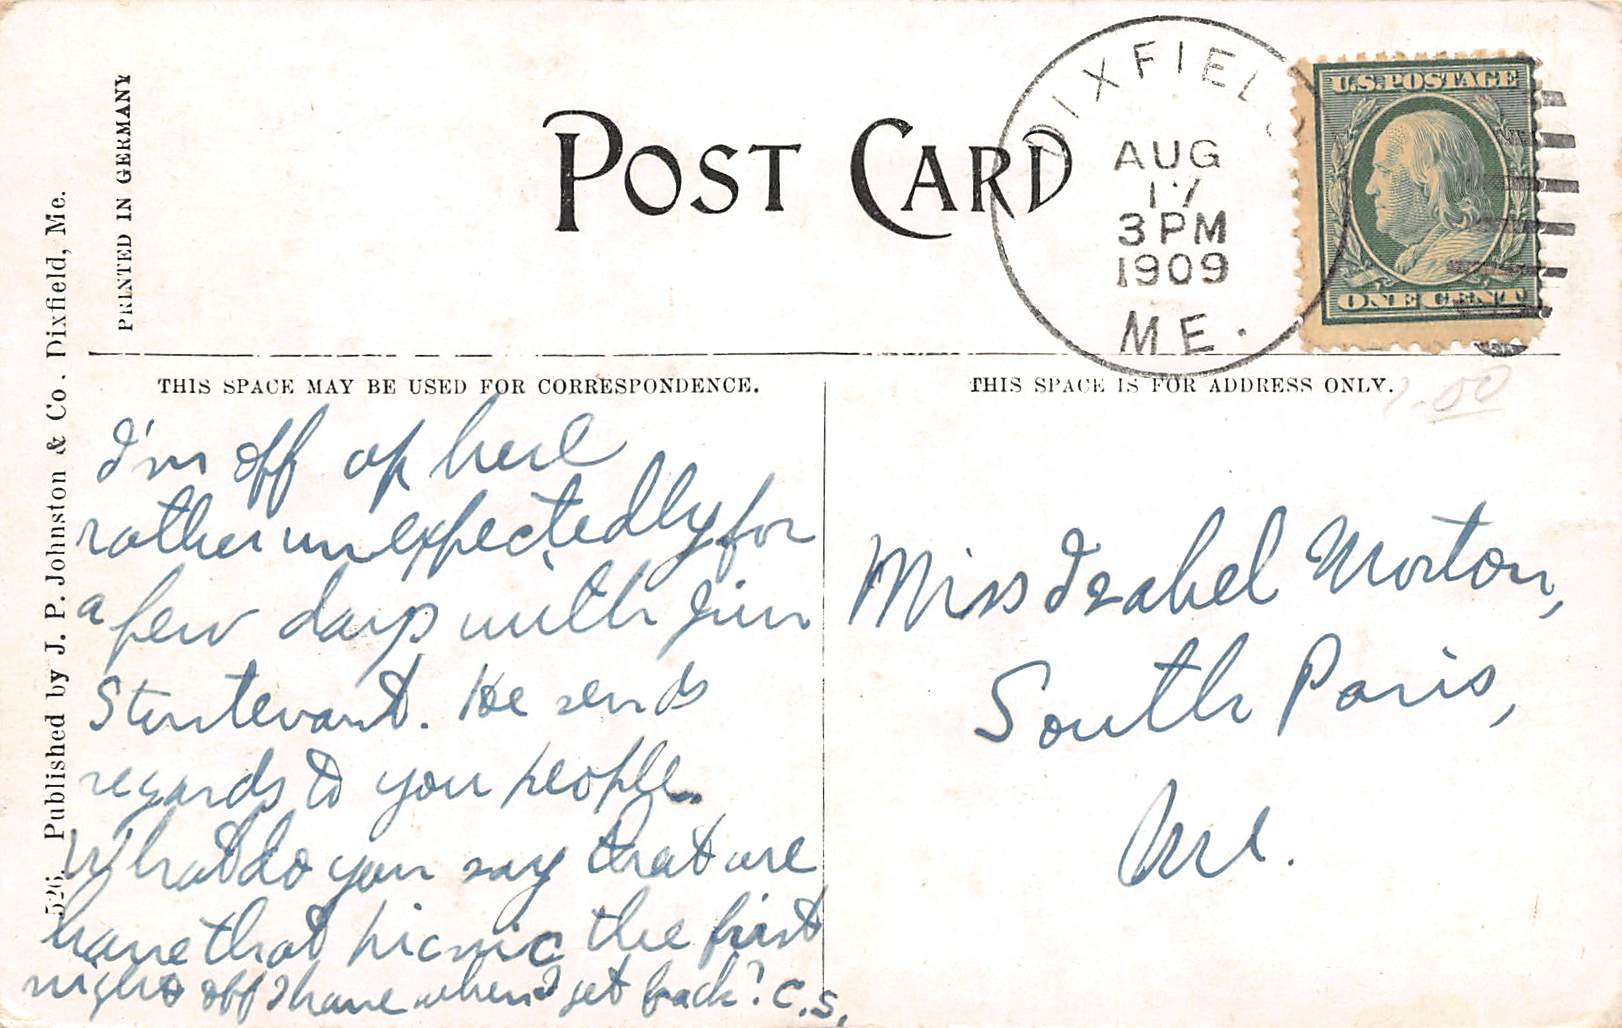 PRINTED IN GERMANY
526. Published by J. P. Johnston & Co. Dixfield, Me.
POST CARD
DIXFIELD
AUG
17
3 PM
1909
ME.
U.S. POSTAGE
ONE CENT
THIS SPACE MAY BE USED FOR CORRESPONDENCE.
I'm off up here
rather unexpectedly for
a few days with Jim
Sturtevant. He sends
regards to your people.
What do you say that we
have that picnic the first
night off I have when I get back? C.S.
THIS SPACE IS FOR ADDRESS ONLY.
.00
Miss Izabel Morton,
South Paris,
Me.